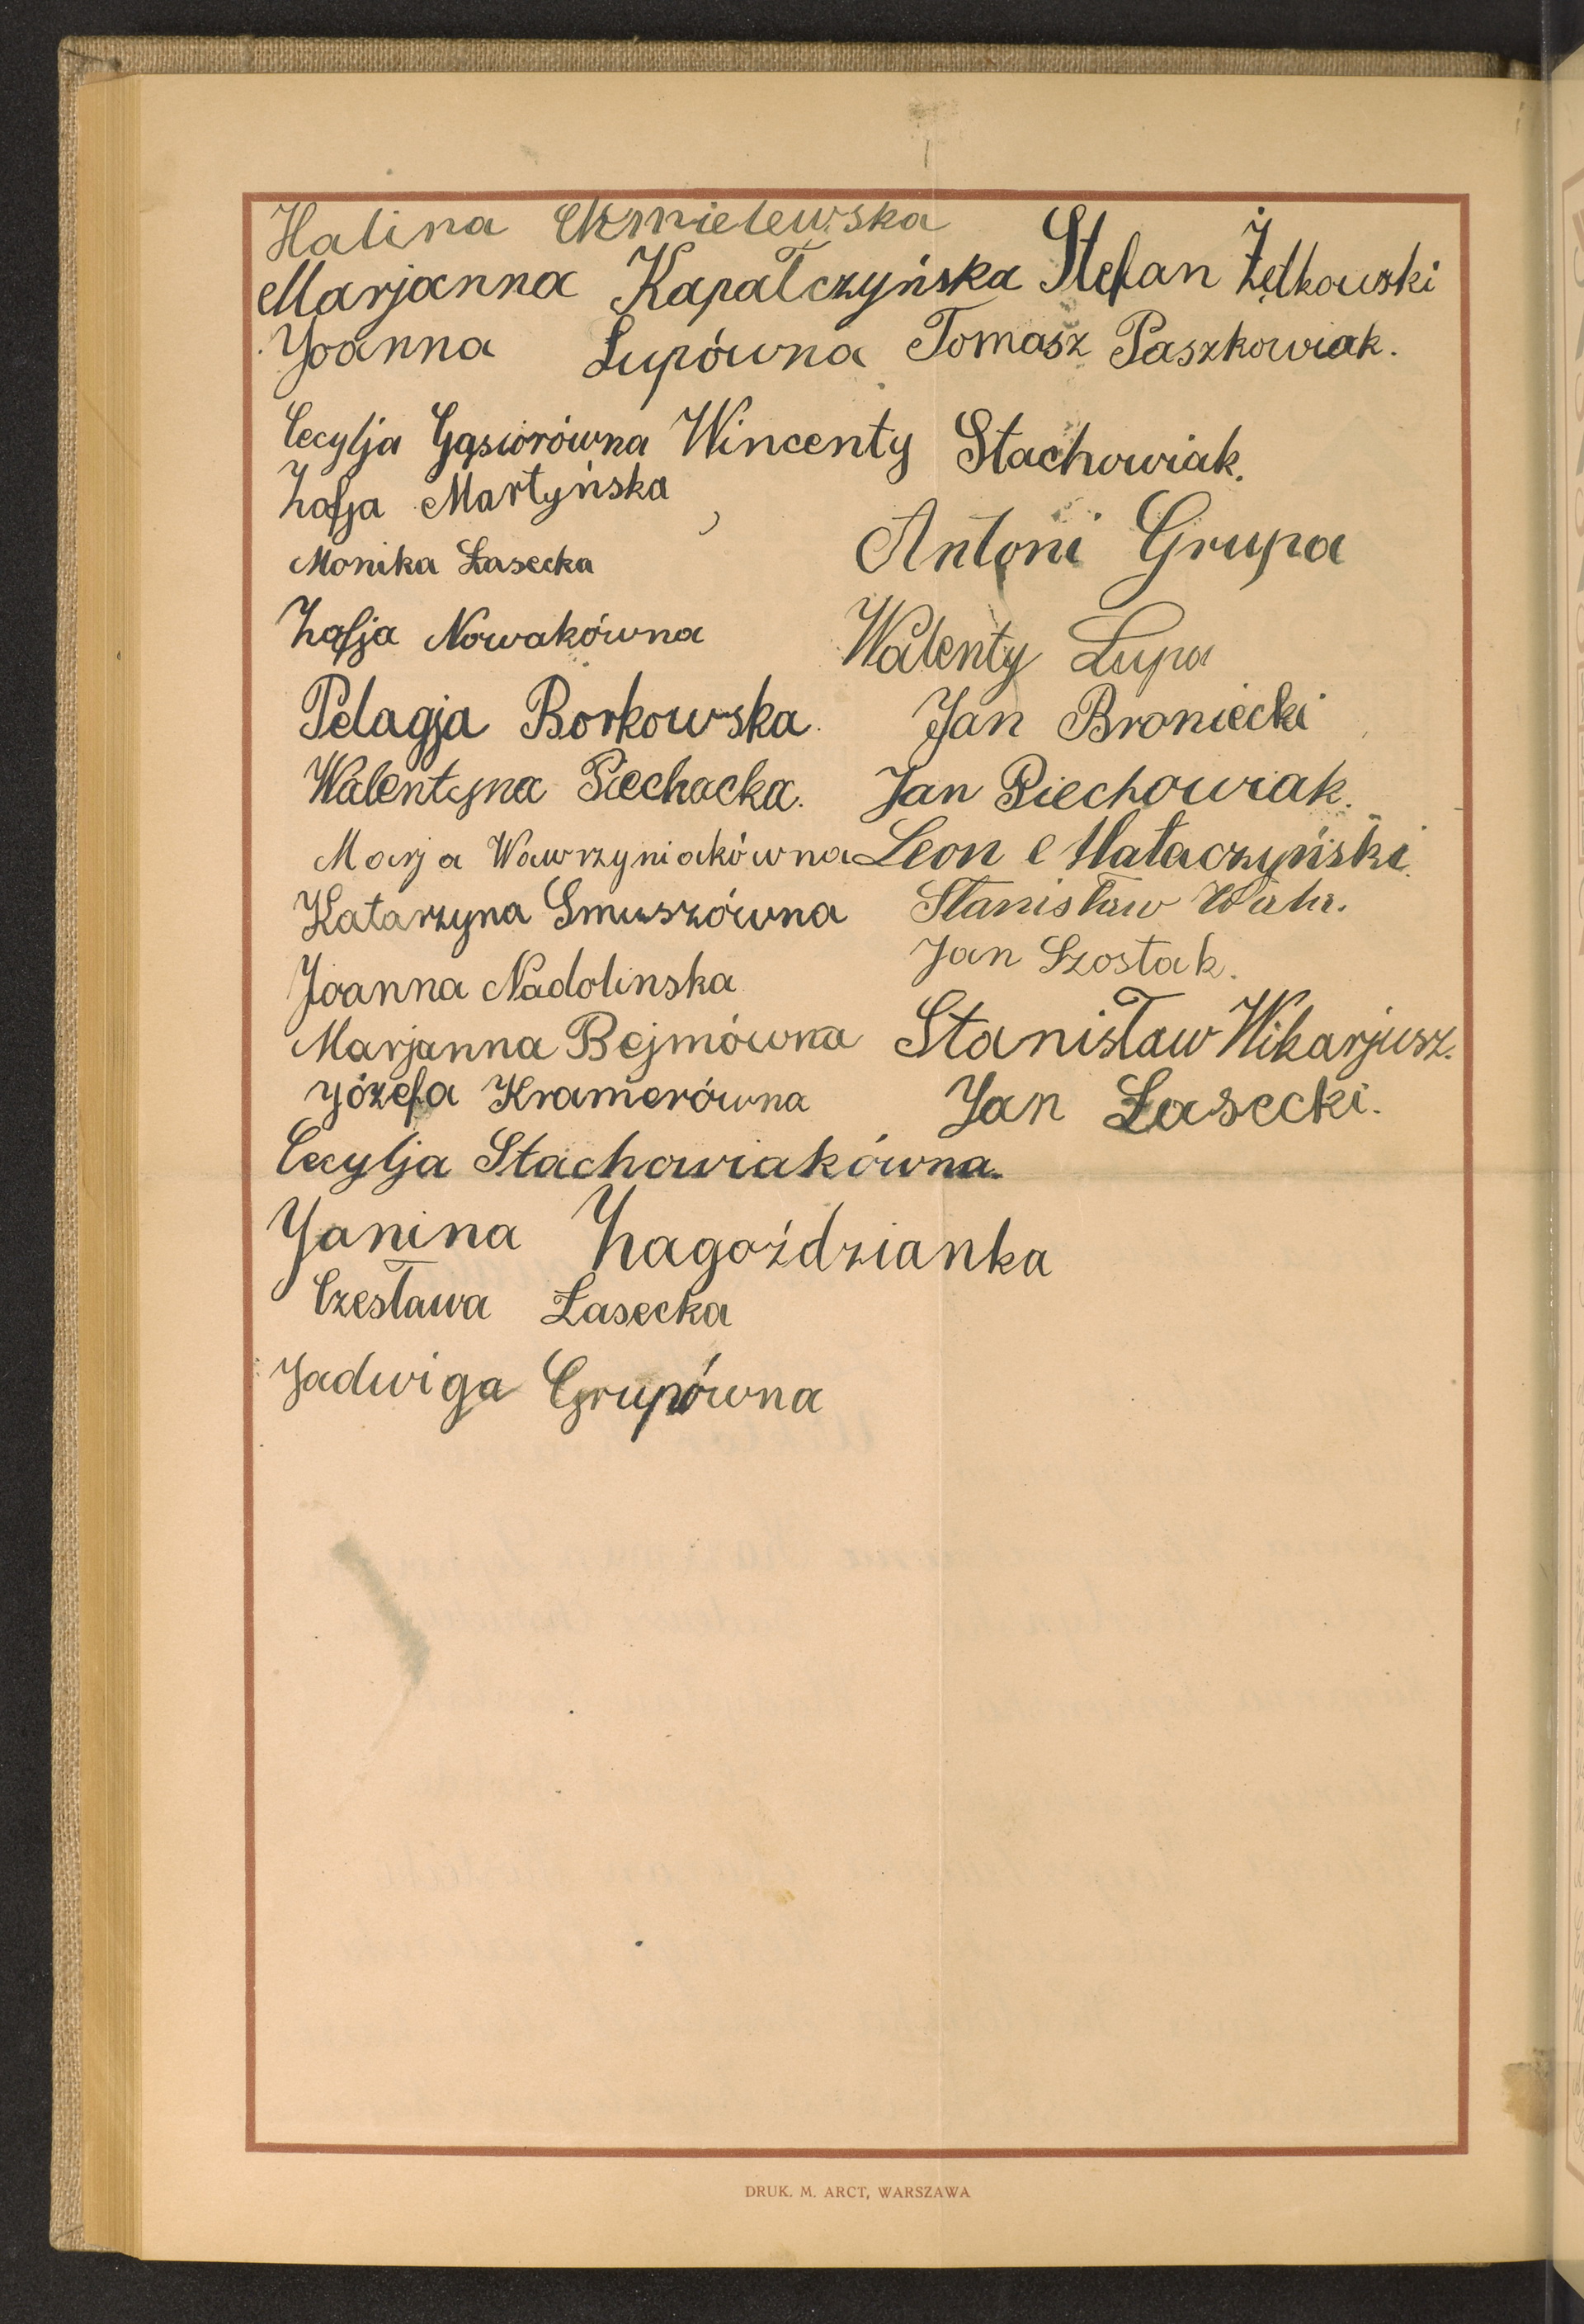 Halina Chmielewska
Marjanna Kapałczyńska Stefan Żętkowski
Joanna Łupówna Tomasz Paszkowiak.
Cecylja Gąsiorówna Wincenty Stachowiak.
Zofja Martyńska
Monika Łasecka Antoni Grupa
Zofja Nowakówna Walenty Łupa
Pelagja Borkowska. Jan Broniecki
Walentyna Piechacka. Jan Piechowiak.
Marja Wawrzyniakówna Leon Mataczyński.
Katarzyna Gmuszówna Stanisław
Jan Szostak.
Joanna Nadolinska
Marjanna Bejmówna Stanisław Wikarjusz.
Józefa Kramerówna Jan Łasecki.
Cecylja Stachowiakówna.
Janina Zagoździanka
Czesława Łasecka
Jadwiga Grupówna
DRUK. M. ARCT, WARSZAWA